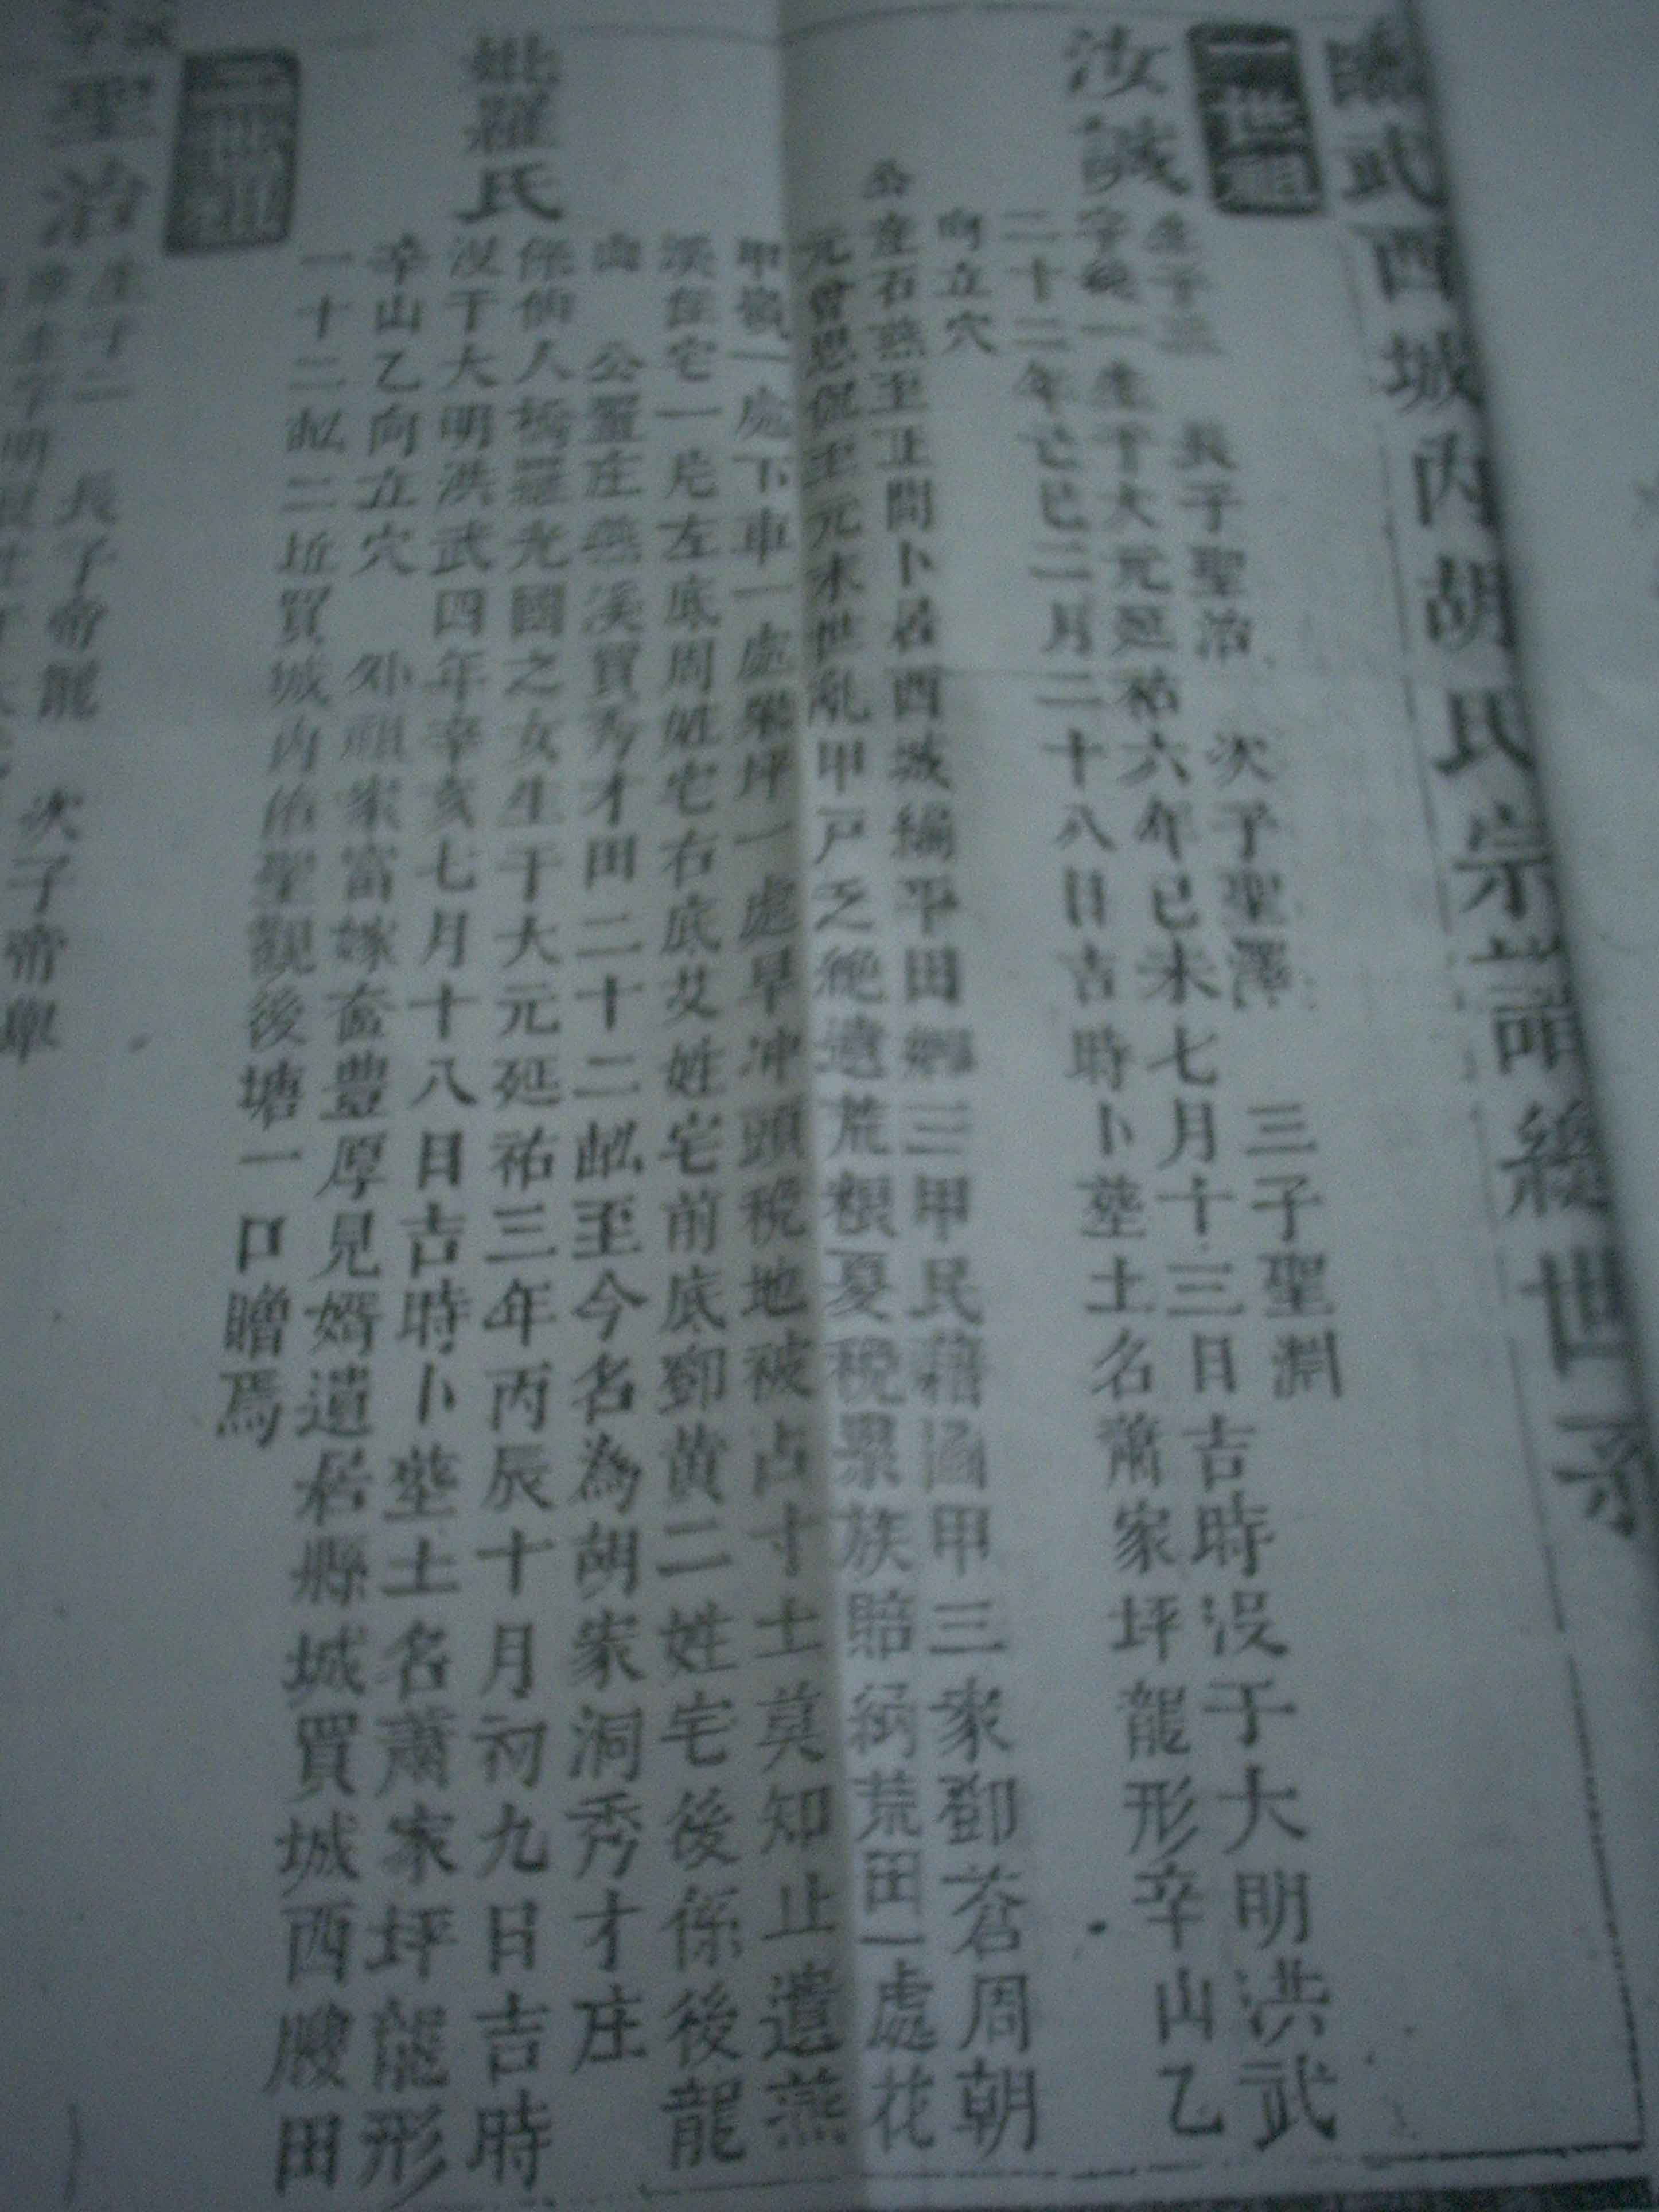 武西城內胡氏宗譜終世系
一世祖
汝誠
生子三 長子聖治 次子聖澤 三子聖淵
字 一 產于大元延祐六年己未七月十三日吉時没于大明洪武
二十二年己巳二月二十八日吉時卜塟土名蕭家坪龍形辛山乙
向立穴
公產石燕至正間卜居西城編平田鄉三甲民籍圖甲三家鄧蒼周朝
元曾思侃至元末世亂甲戶乏絶遺荒糧夏稅累族賠納荒田一處花
甲嶺一處下車一處欒坪一處旱冲頭稅地被占寸土莫知止遺燕
溪住宅一片左底周姓宅右底艾姓宅前底鄧黃二姓宅後係後龍
山 公置庄燕溪買秀才田二十二畝至今名為胡家洞秀才庄
妣羅氏
係俏人橋羅光國之女生于大元延祐三年丙辰十月初九日吉時
没于大明洪武四年辛亥七月十八日吉時卜塟土名蕭家坪龍形
辛山乙向立穴 外祖家富嫁奩豐厚見婿遺居縣城買城西腴田
一十二畝二坵買城內佑聖觀後塘一口贈焉
二世祖
聖治
生子二 長子帝龍 次子帝